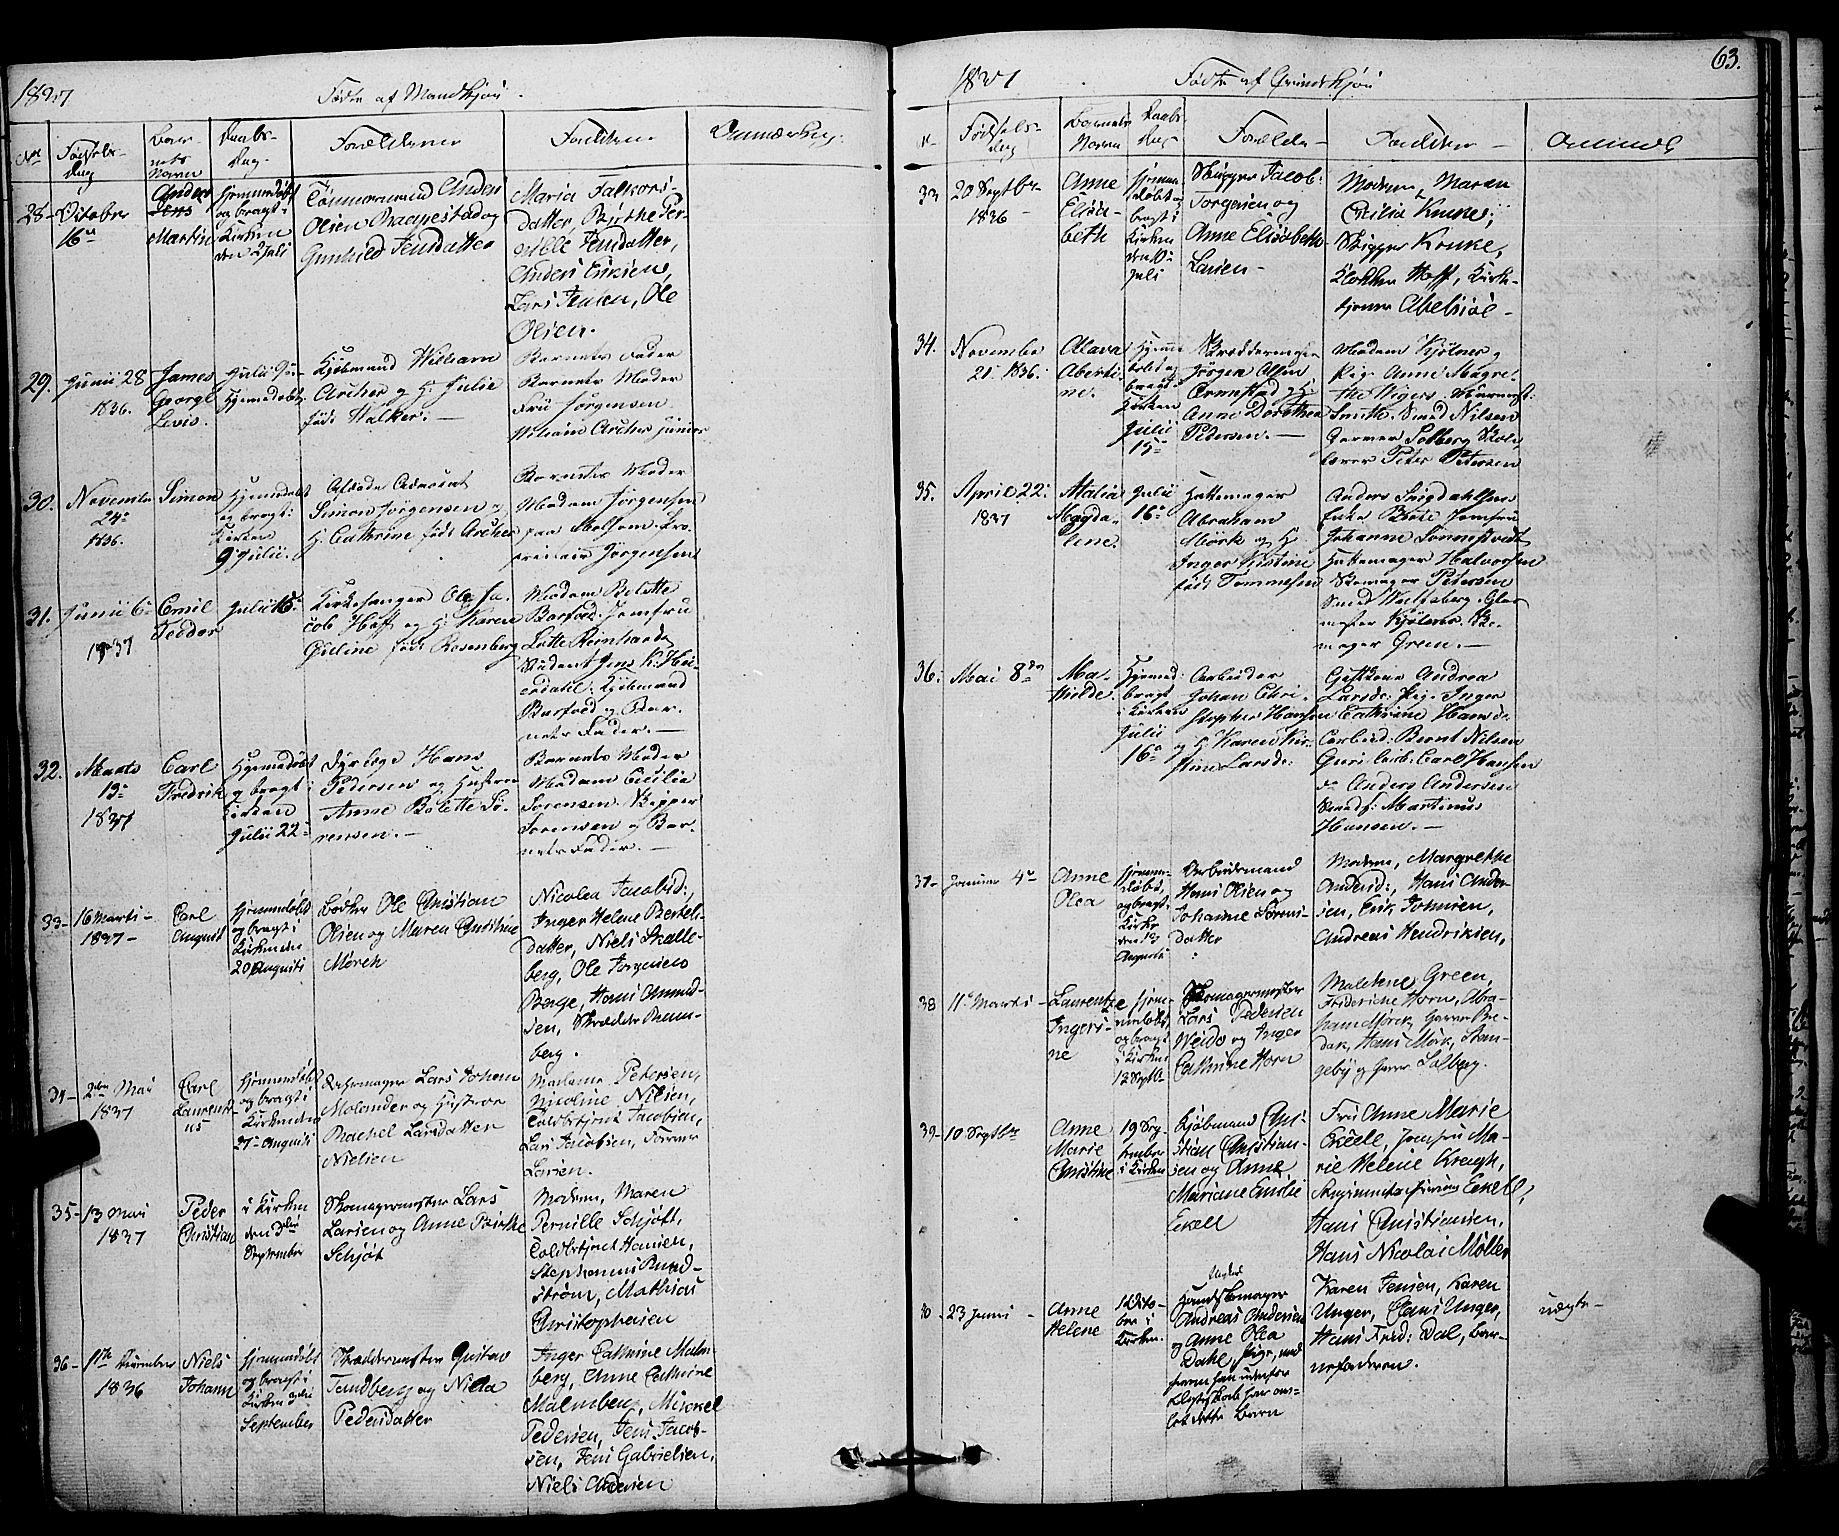 1837
Fødte af Mandkjøn.
No
Fødsels-
dag
Bar-
nets
Navn
Daabs-
dag
Forældrene
Faddere
Anmærkn:
28-
October
16de
Anders
Jens
Martin
hjemmedøbt
og bragt i
Kirken
den 2 Juli
Tømmermand Anders
Olsen Rappestad og
Gunhild Jensdatter
Maria Falkors-
datter, Birthe Per-
Anders Eriksen,
Lars Jensen, Ole
Olsen.
29.
Junii 28
1836.
James
George
Levis.
Julii 9de
hjemmedøbt
Kjøbmand William
Archer og H. Julie
født Walker. —
Barnets Fader
Barnets Moder
Fru Jørgensen
William Archer junior
30.
November
24de
1836.
Simon
Hjemmedøbt
og bragt i
Kirken
9 Julii.
Afdøde Advocat
Simon Jørgensen og
H. Cathrine født Archer
Barnets Moder
Madam Jørgensen
paa Melsom. Pro-
prietair Jørgensen
31.
Junii 6te
1837
Emil
Teodor
Julii 16de
Kirkesanger Ole Ja-
cob Hoff og H. Karen
Geline født Rosenberg
Madam Bolette
Barfoed. Jomfru
Lotte Reinhardt
Student Jens K. Hu-
Kjøbmand
Barfoed og Bar-
nets Fader. —
32.
Marts
13de
1837
Carl
Fredrik
Hjemmedøbt
og bragt i
Kirken
Julii 22de
Dyrlæge Hans
Pedersen og Hustrue
Anne Bolette Sø-
rensen. —
Barnets Moder
Madam Cicilia
Sørensen. Skipper
Sørensen og Bar-
nets Fader. —
33-
16 Marti-
1837-
Carl
August
hjemmedøbt
og bragt i
Kirken den
20 Augusti
Bødker Ole Christian
Olsen og Maren Christine
Mörch
Nicolea Jacobsd:,
Inger Helene Bertels-
datter, Niels Skalle-
berg, Ole Jørgensen
Berge, Hans Amund-
sen, Skrædder Brun-
berg.
34-
2den Mai
1837
Carl
Laurent-
us
hjemmedøbt
og bragt i
Kirken den
27de Augusti
Lars Johan
Molander og Hustroe
Rachel Larsdatter
Nielsen
Madame Petersen,
Nicoline Nielsen,
Toldbetjent Jacobsen,
Lars Jacobsen, Farver
Larsen.
35-
13 Mai
1837
Peder
Christian
i Kirken
den 3die
September
Skomagermester Lars
Larsen og Anne Birthe
Schjøt
Moderen, Maren
Pernille Schjøtt,
Toldbetjent Hansen,
Stephanus Rund-
ström, Mathias
Christophersen
36-
11te December
1836
Niels
Johann
hjemmedøbt
og bragt i
Kirken 3die
September
Skræddermester Gustav
Tandberg og Nicta
Pedersdatter
Inger Cathrine Malm-
berg, Anne Cathrine
Malmberg, Mickel
Pedersen, Jens Jacob-
sen, Jens Gabrielsen,
Niels Andersen
63.
1837
Fødte af Qvindekjøn
N
Fødsels-
dag
Barnets
Navn
Daabs-
dag
Forældre-
Faddere-
Anmærk
33
20 Septbr-
1836-
Anne
Elisa-
beth
hjemme-
døbt og
bragt i
Kirken
Juli
Skipper Jacob
Torgersen og
Anne Elisabeth
Larsen-
Moderen, Maren
Cecilia Kruke,
Skipper Kruke,
Klokker Hoff, Kirke-
tjener Abelsöe-
34.
November
21 1836.
Olava
Aberti-
ne.
Hjemme
døbt og
bragt i
Kirken
Julii
15de
Skræddermester
Jørgen Olsen
Ormestad og H.
Anne Dorothea
Pedersen. —
Madam Kjølner og
Pig. Anne Magre-
the Wigers. Murmest:
Smith. Smed Nilsen
Garver Solberg Skole
lærer Peter Petersen
35.
April 22.
1837
Malia
Magda-
lene.
Julii
16de
Hattemager
Abraham
Mörk og H.
Inger Kistine
født Tommesen
Anders Snigdahlsen
Enke Jomfru
Johanne Sonnestvedt
Hattemager Halvorsen
Skomager Petersen
Smed Waltsberg. Glar
mester Kjølner. Sko-
mager Green. —
36.
Mai 8de
Ma-
thilde.
Hjemmed:
bragt
i Kirken
Julii
16de
Arbeider
Johan Chri-
stopher Hansen
og H. Karen Kir-
stine Larsdr.
Giftkone Andrea
Larsdr. Pig. Inger
Cathrine Hansdr.
Arbeid: Bernt Nilsen
Carl Hansen
do Anders Andersen
Smeds: Martinus
Hansen. —
37-
Januar 4de
Anne
Olea
hjemme-
døbt,
og bragt i
Kirke
den 13
Augusti
Arbeidsmand
Hans Olsen og
Johanne Sörens-
datter
Moderen, Margrethe
Andersd:, Hans Ander-
sen, Erik Johnsen,
Andreas Hendriksen,
38
11te Marti-
Laurentze
Ingeri-
ne
hjem-
medøbt,
og bragt
i Kirken
12 Septbr
Skomagermester
Lars Pedersen
Weide og Inger
Cathrine Horn
Malene Green,
Friderikke Horn, Abra-
ham Mörck, Garver Bre-
dak, Hans Mörk, Stan-
geby og Farver Solberg.
39-
10 Septbr
Anne
Marie
Christine
19 Sep-
tember
i Kirken
Kjøbmand Chri-
stian Christian-
sen og Anne
Mariane Emilie
Eckell
Fru Anne Marie
Eckell, Jomfru Ma-
rie Helene Kragh,
Eckell,
Hans Christiansen,
Hans Nicolai Møller
40-
23 Juni-
Anne
Helene
1 Octo-
ber i
Kirken.
Unger
Handskemager
Andreas Andersen
og Anne Olea
Dahl, Pige, med
hvem han udenfor
Ægteskab har av-
let dette Barn
Karen Jensen, Karen
Unger, Hans Unger,
Hans Fred: Dal, Bar-
nefaderen.
uægte-